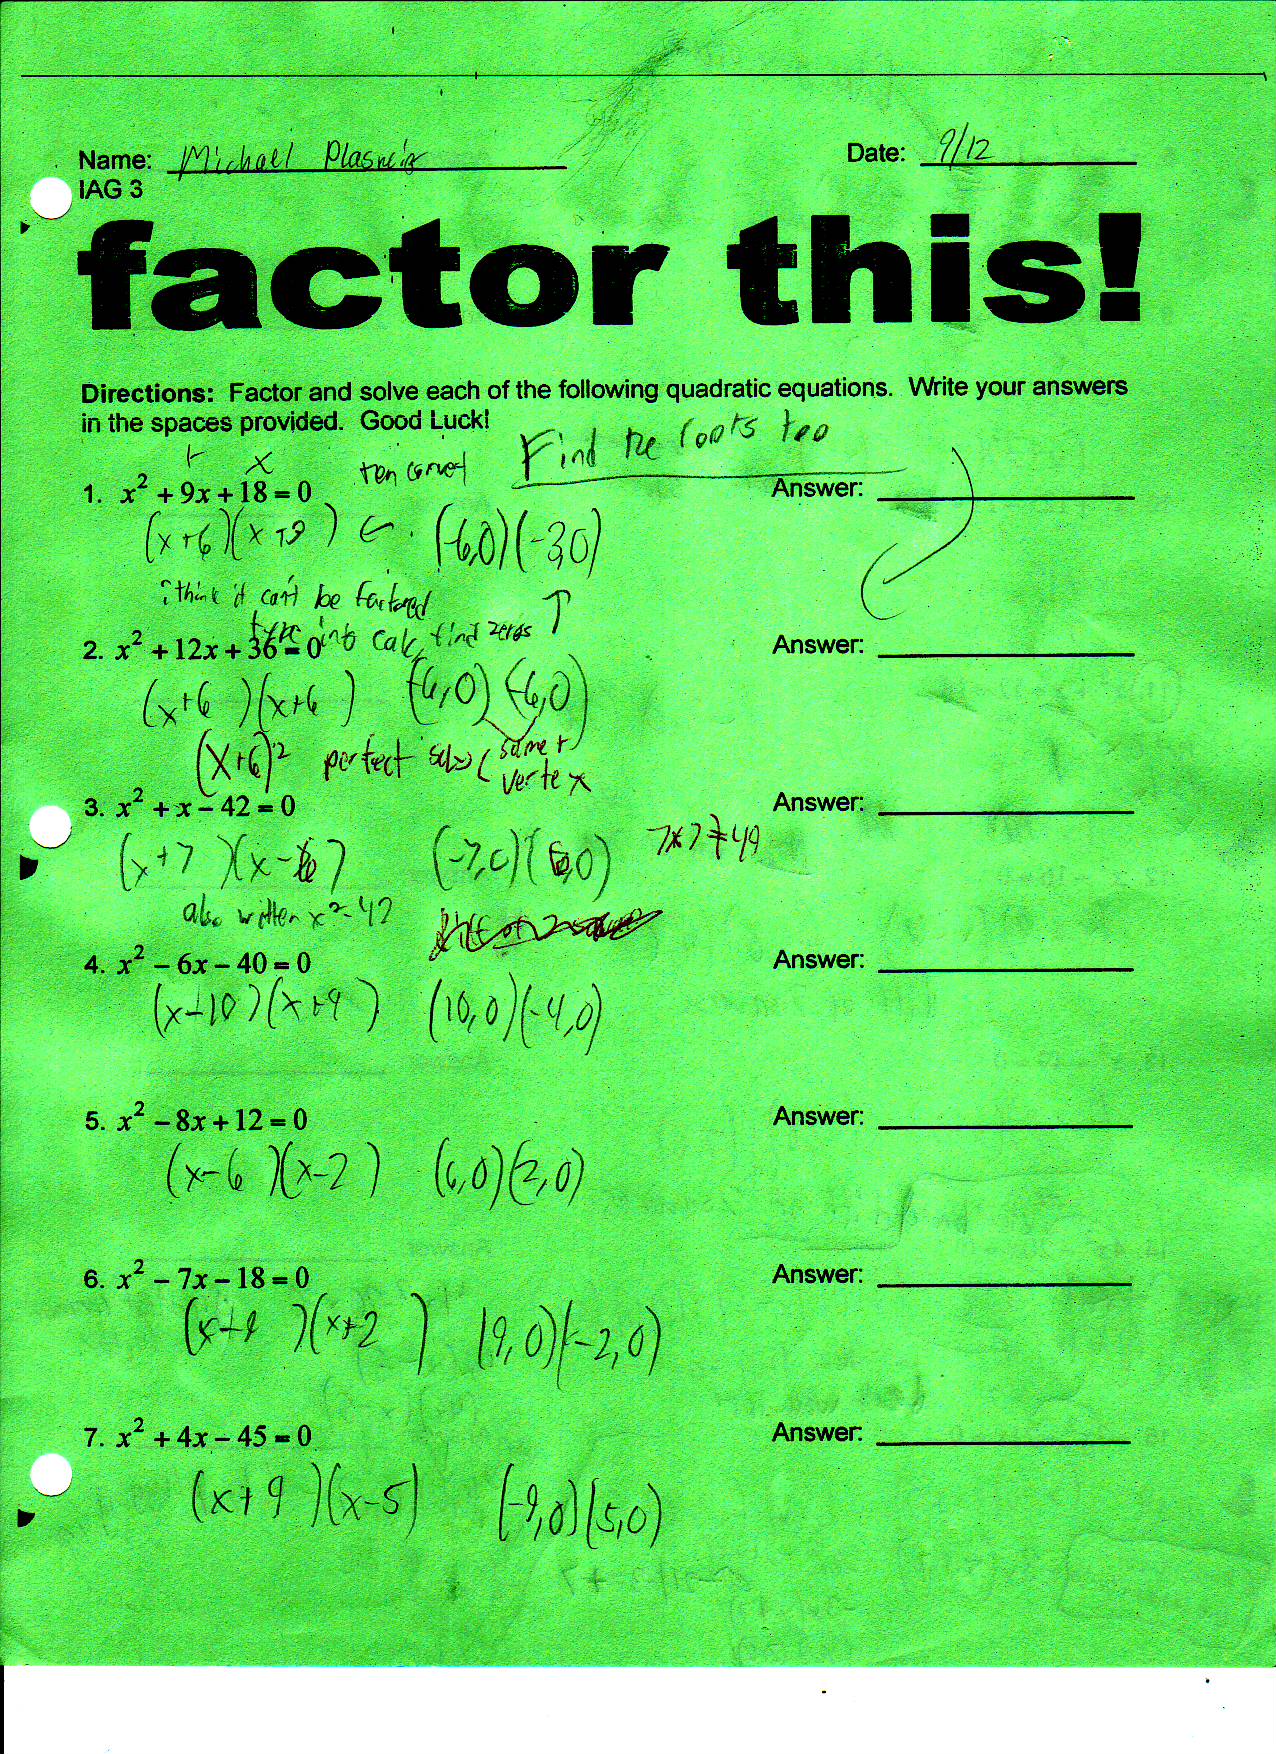 Name: Michael
Date: 9/12
IAG 3
factor this!
Directions: Factor and solve each of the following quadratic equations. Write your answers
in the spaces provided. Good Luck!
Find the roots too
+ x
1. x² + 9x + 18 = 0
Answer:
(x+6)(x+3) ← (-6,0)(-3,0)
i think it can't be factored ↑
type into calc, find zeros
2. x² + 12x + 36 = 0
Answer:
(x+6)(x+6) (-6,0)(-6,0)
(x+6)² perfect same +
vertex
3. x² + x – 42 = 0
Answer:
(x+7)(x-6) (-7,0)(6,0) 7x7≠49
also written x²-42
4. x² – 6x – 40 = 0
Answer:
(x-10)(x+4) (10,0)(-4,0)
5. x² – 8x + 12 = 0
Answer:
(x-6)(x-2) (6,0)(2,0)
6. x² – 7x – 18 = 0
Answer:
(x-9)(x+2) (9,0)(-2,0)
7. x² + 4x – 45 = 0
Answer:
(x+9)(x-5) (-9,0)(5,0)